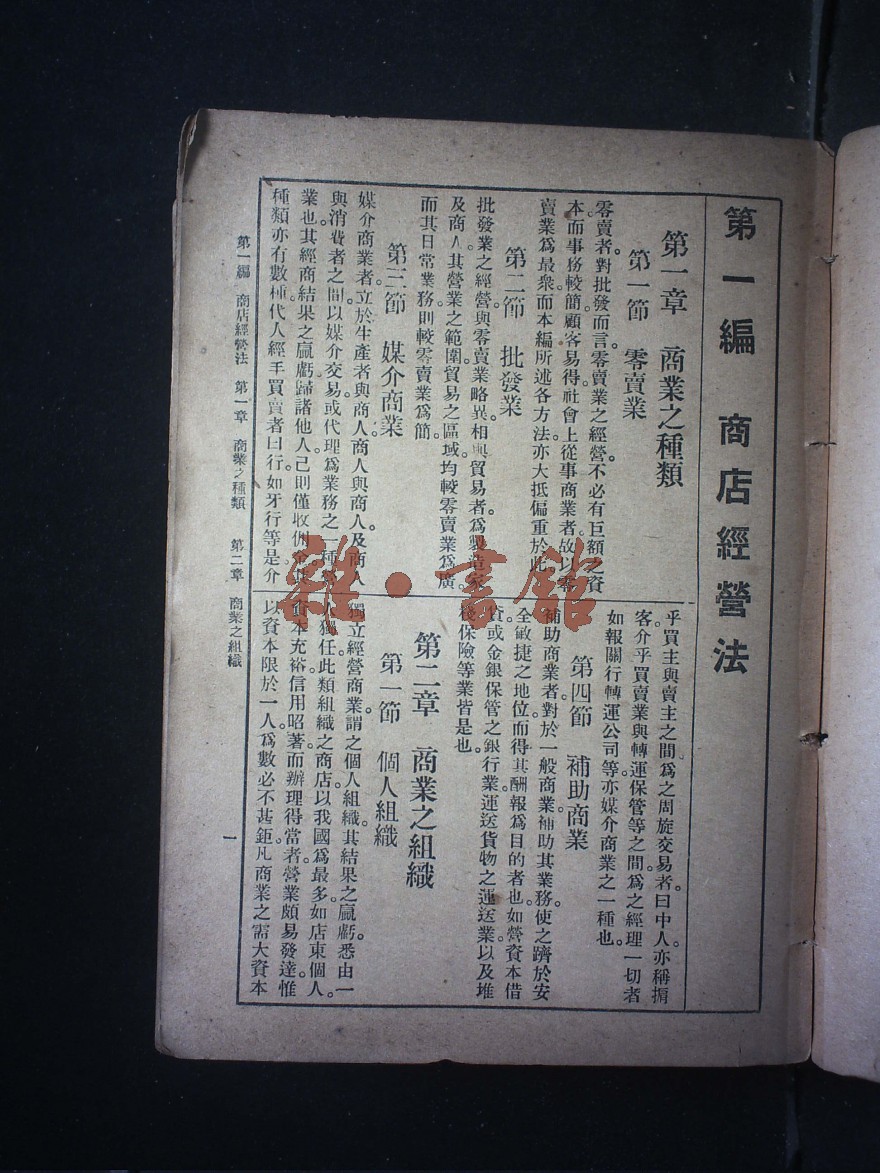 第一編　商店經營法
第一章　商業之種類
第一節　零賣業
零賣者對批發而言。零賣業之經營。不必有巨額之資
本而事務較簡。顧客易得。社會上從事商業者。故以零
賣業爲最衆。而本編所述各方法。亦大抵偏重於此。
第二節　批發業
批發業之經營。與零賣業略異。相與貿易者。爲製造家
及商人。其營業之範圍。貿易之區域。均較零賣業爲廣。
而其日常業務。則較零賣業爲簡。
第三節　媒介商業
媒介商業者。立於生產者與商人。商人與商人。及商人
與消費者之間。以媒介交易。或代理爲業務之一種
業也。其經商結果之贏虧。歸諸他人。己則僅收佣
種類亦有數種。代人經手買賣者曰行。如牙行等是。介
乎買主與賣主之間。爲之周旋交易者。曰中人。亦稱掮
客。介乎買賣業與轉運保管等之間。爲之經理一切者。
如報關行轉運公司等。亦媒介商業之一種也。
第四節　補助商業
補助商業者。對於一般商業。補助其業務。使之躋於安
全敏捷之地位。而得其酬報爲目的者也。如營資本借
貸或金銀保管之銀行業。運送貨物之運送業。以及堆
棧保險等業皆是也。
第二章　商業之組織
第一節　個人組織
獨立經營商業。謂之個人組織。其結果之贏虧。悉由一
人獨任。此類組織之商店。以我國爲最多。如店東個人。
資本充裕。信用昭著。而辦理得當者。營業頗易發達。惟
以資本限於一人。爲數必不甚鉅。凡商業之需大資本
第一編　商店經營法　第一章　商業之種類　第二章　商業之組織
一
雜·書館